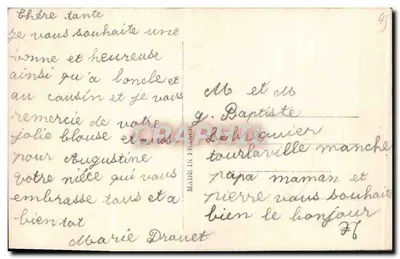 Chére tante
je vous souhaite une
bonne et heureuse
ainsi qu'a loncle et
au cousin et je vous
remercie de votre
jolie blouse et aussi
pour Augustine
votre nièce qui vous
embrasse tous et a
bientot
Marie Drouet
MADE IN FRANCE
M et M
g. Baptiste
tourlaville manche
papa maman et
pierre vous souhaite
bien le bonjour